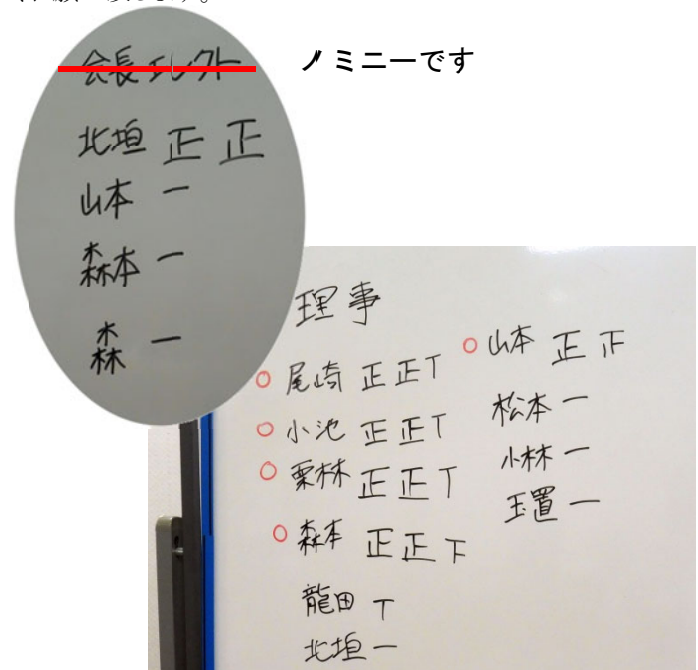 会長エレクト
ノミニーです
北垣 正 正
山本 一
森本 一
森 一
理事
尾崎 正正T
小池 正正T
栗林 正正T
森本 正正下
龍田 T
北垣 一
山本 正 下
松本 一
小林 一
玉置 一